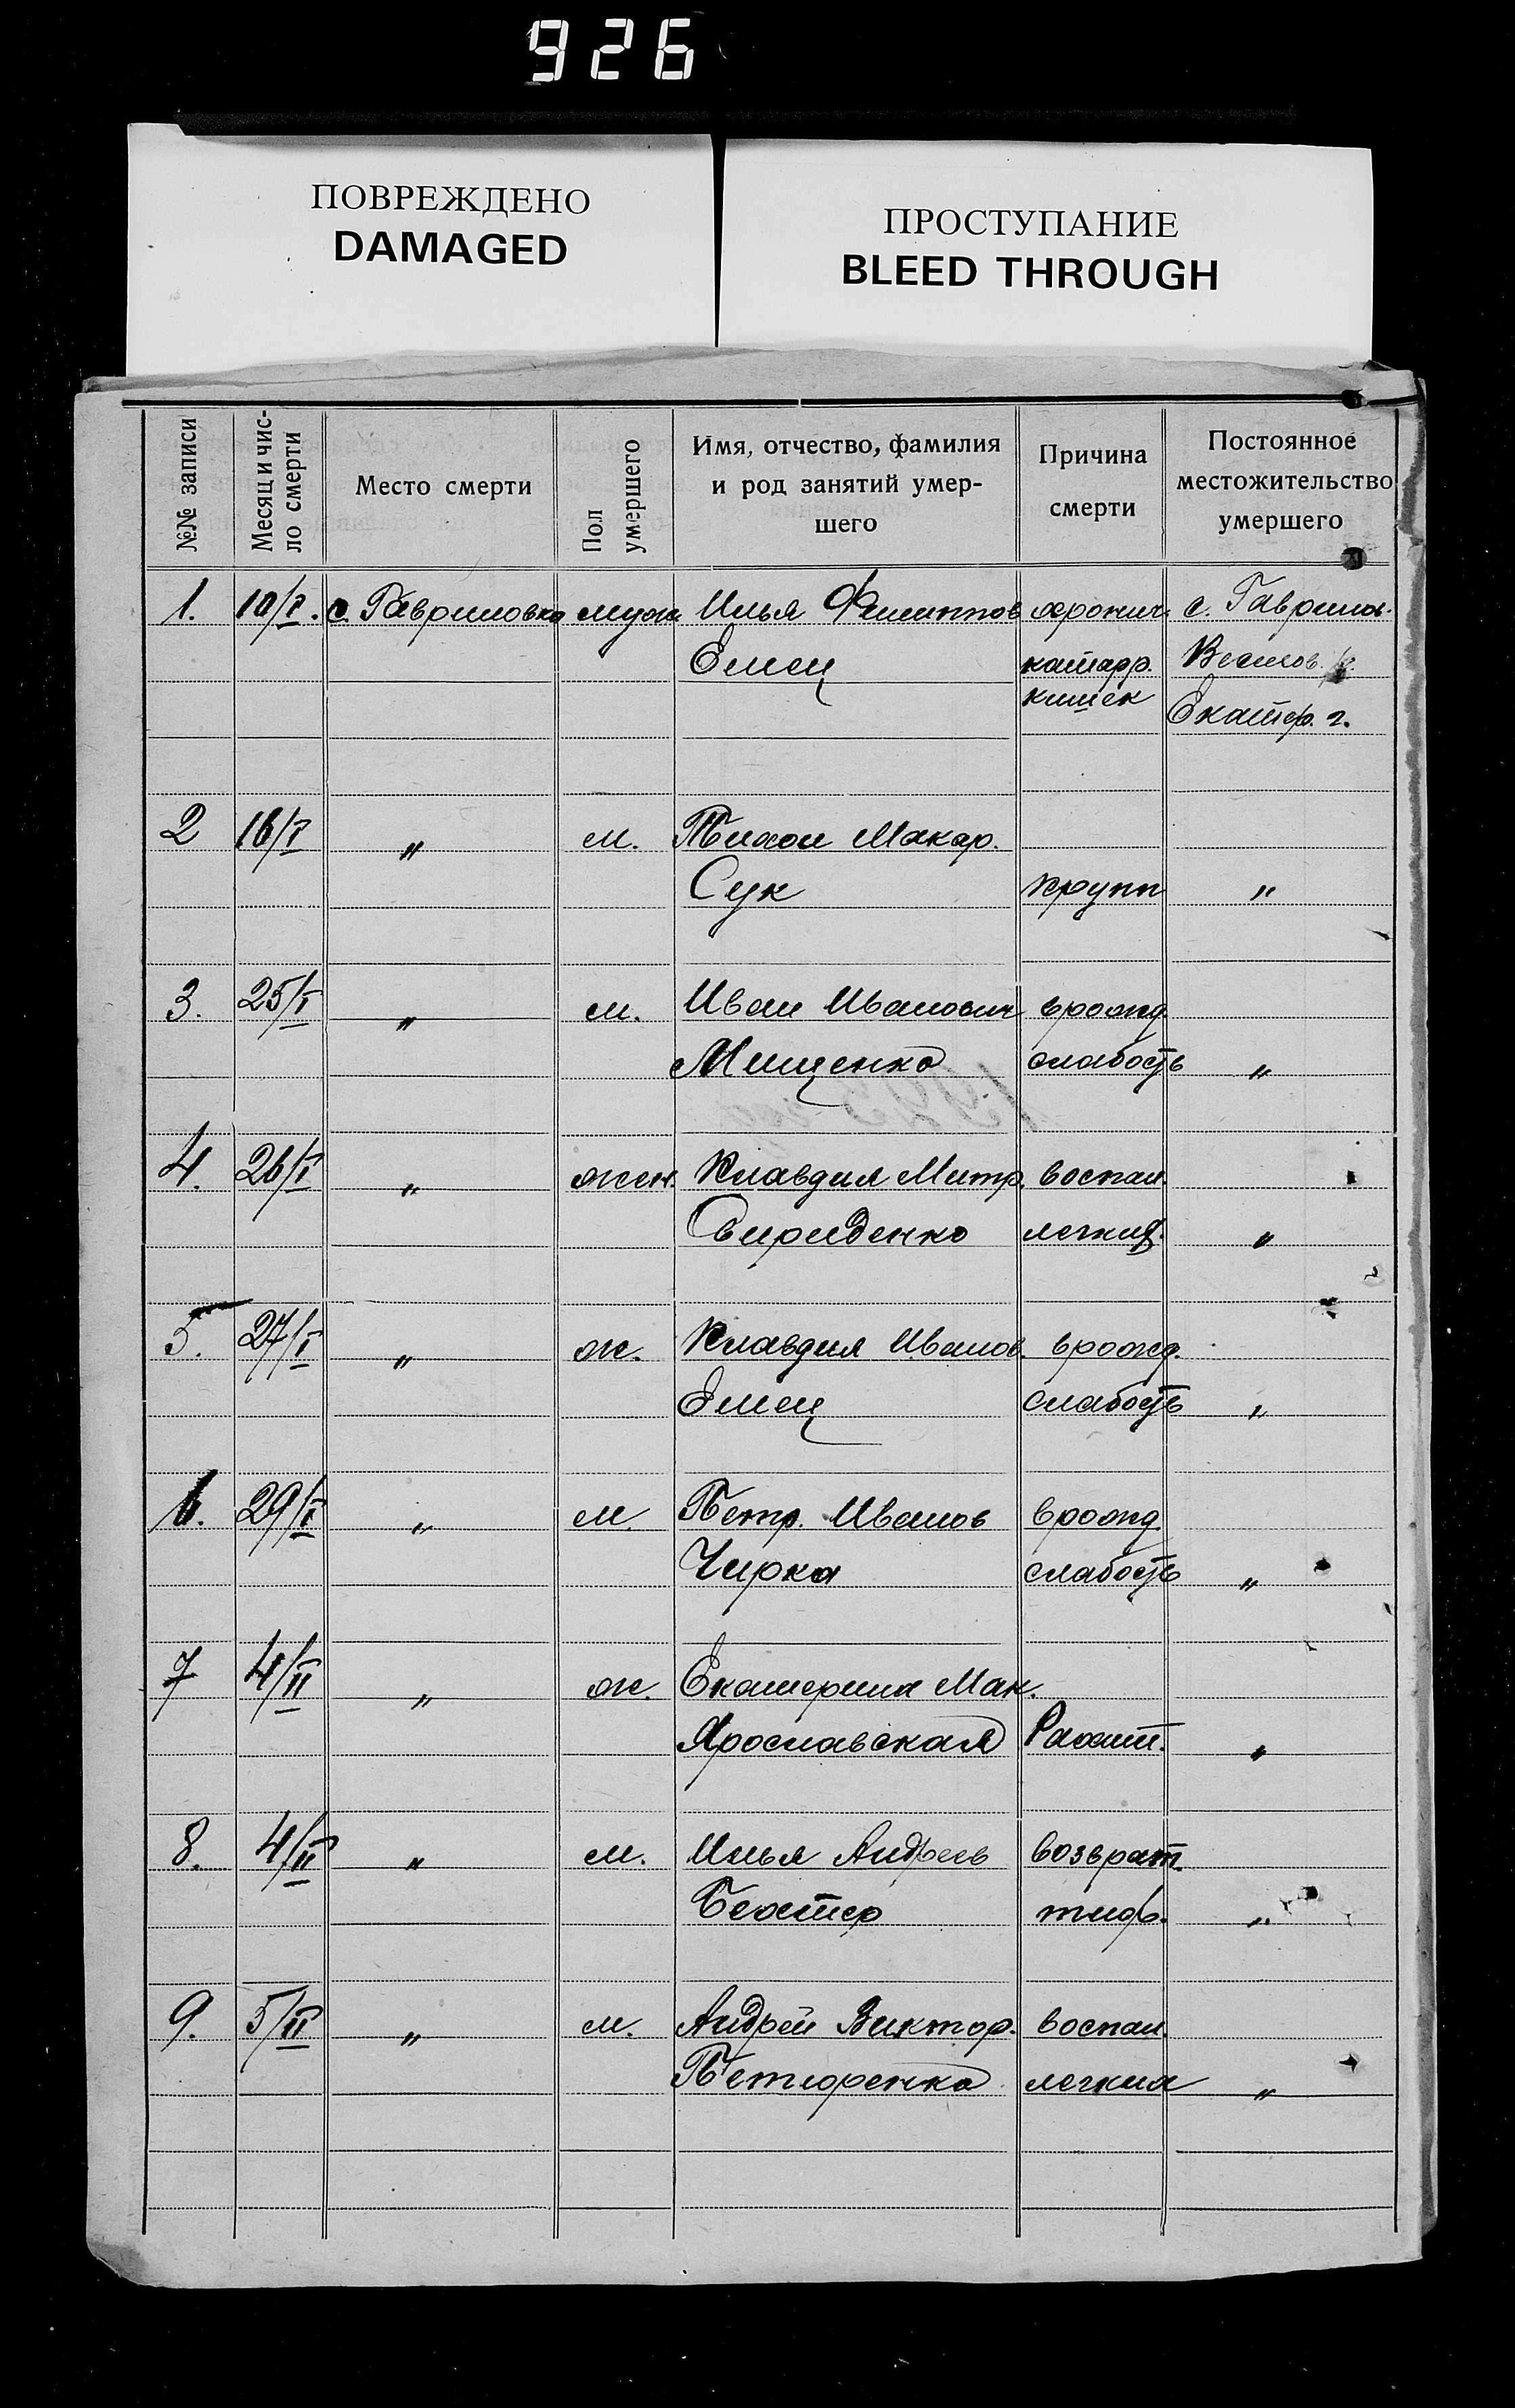 926
ПОВРЕЖДЕНО
DAMAGED
ПРОСТУПАНИЕ
BLEED THROUGH
№№ записи
Месяц и чис-
ло смерти
Место смерти
Пол
умершего
Имя, отчество, фамилия
и род занятий умер-
шего
Причина
смерти
Постоянное
местожительство
умершего
1. 10/I. с. Гавриловка муж. Илья Филиппов хронич. с. Гаврилов.
Емец катарр.
кишек Екатер. г.
2 16/I " м. Тихон Макар.
Сук крупп "
3. 25/I " м. Иван Иванович врожд.
Мищенко слабость "
4. 26/I " жен. Клавдия Митр. воспал.
Свириденко легких. "
5. 27/I " ж. Клавдия Иванов. врожд.
Емец слабость "
6. 29/I " м. Петр. Иванов врожд.
Чирка слабость "
7 4/II " ж. Екатерина Мак.
Ярославская Рахит. "
8. 4/II " м. Илья Андреев возврат.
тиф. "
9. 5/II " м. Андрей Виктор. воспал.
Петюренко легких "